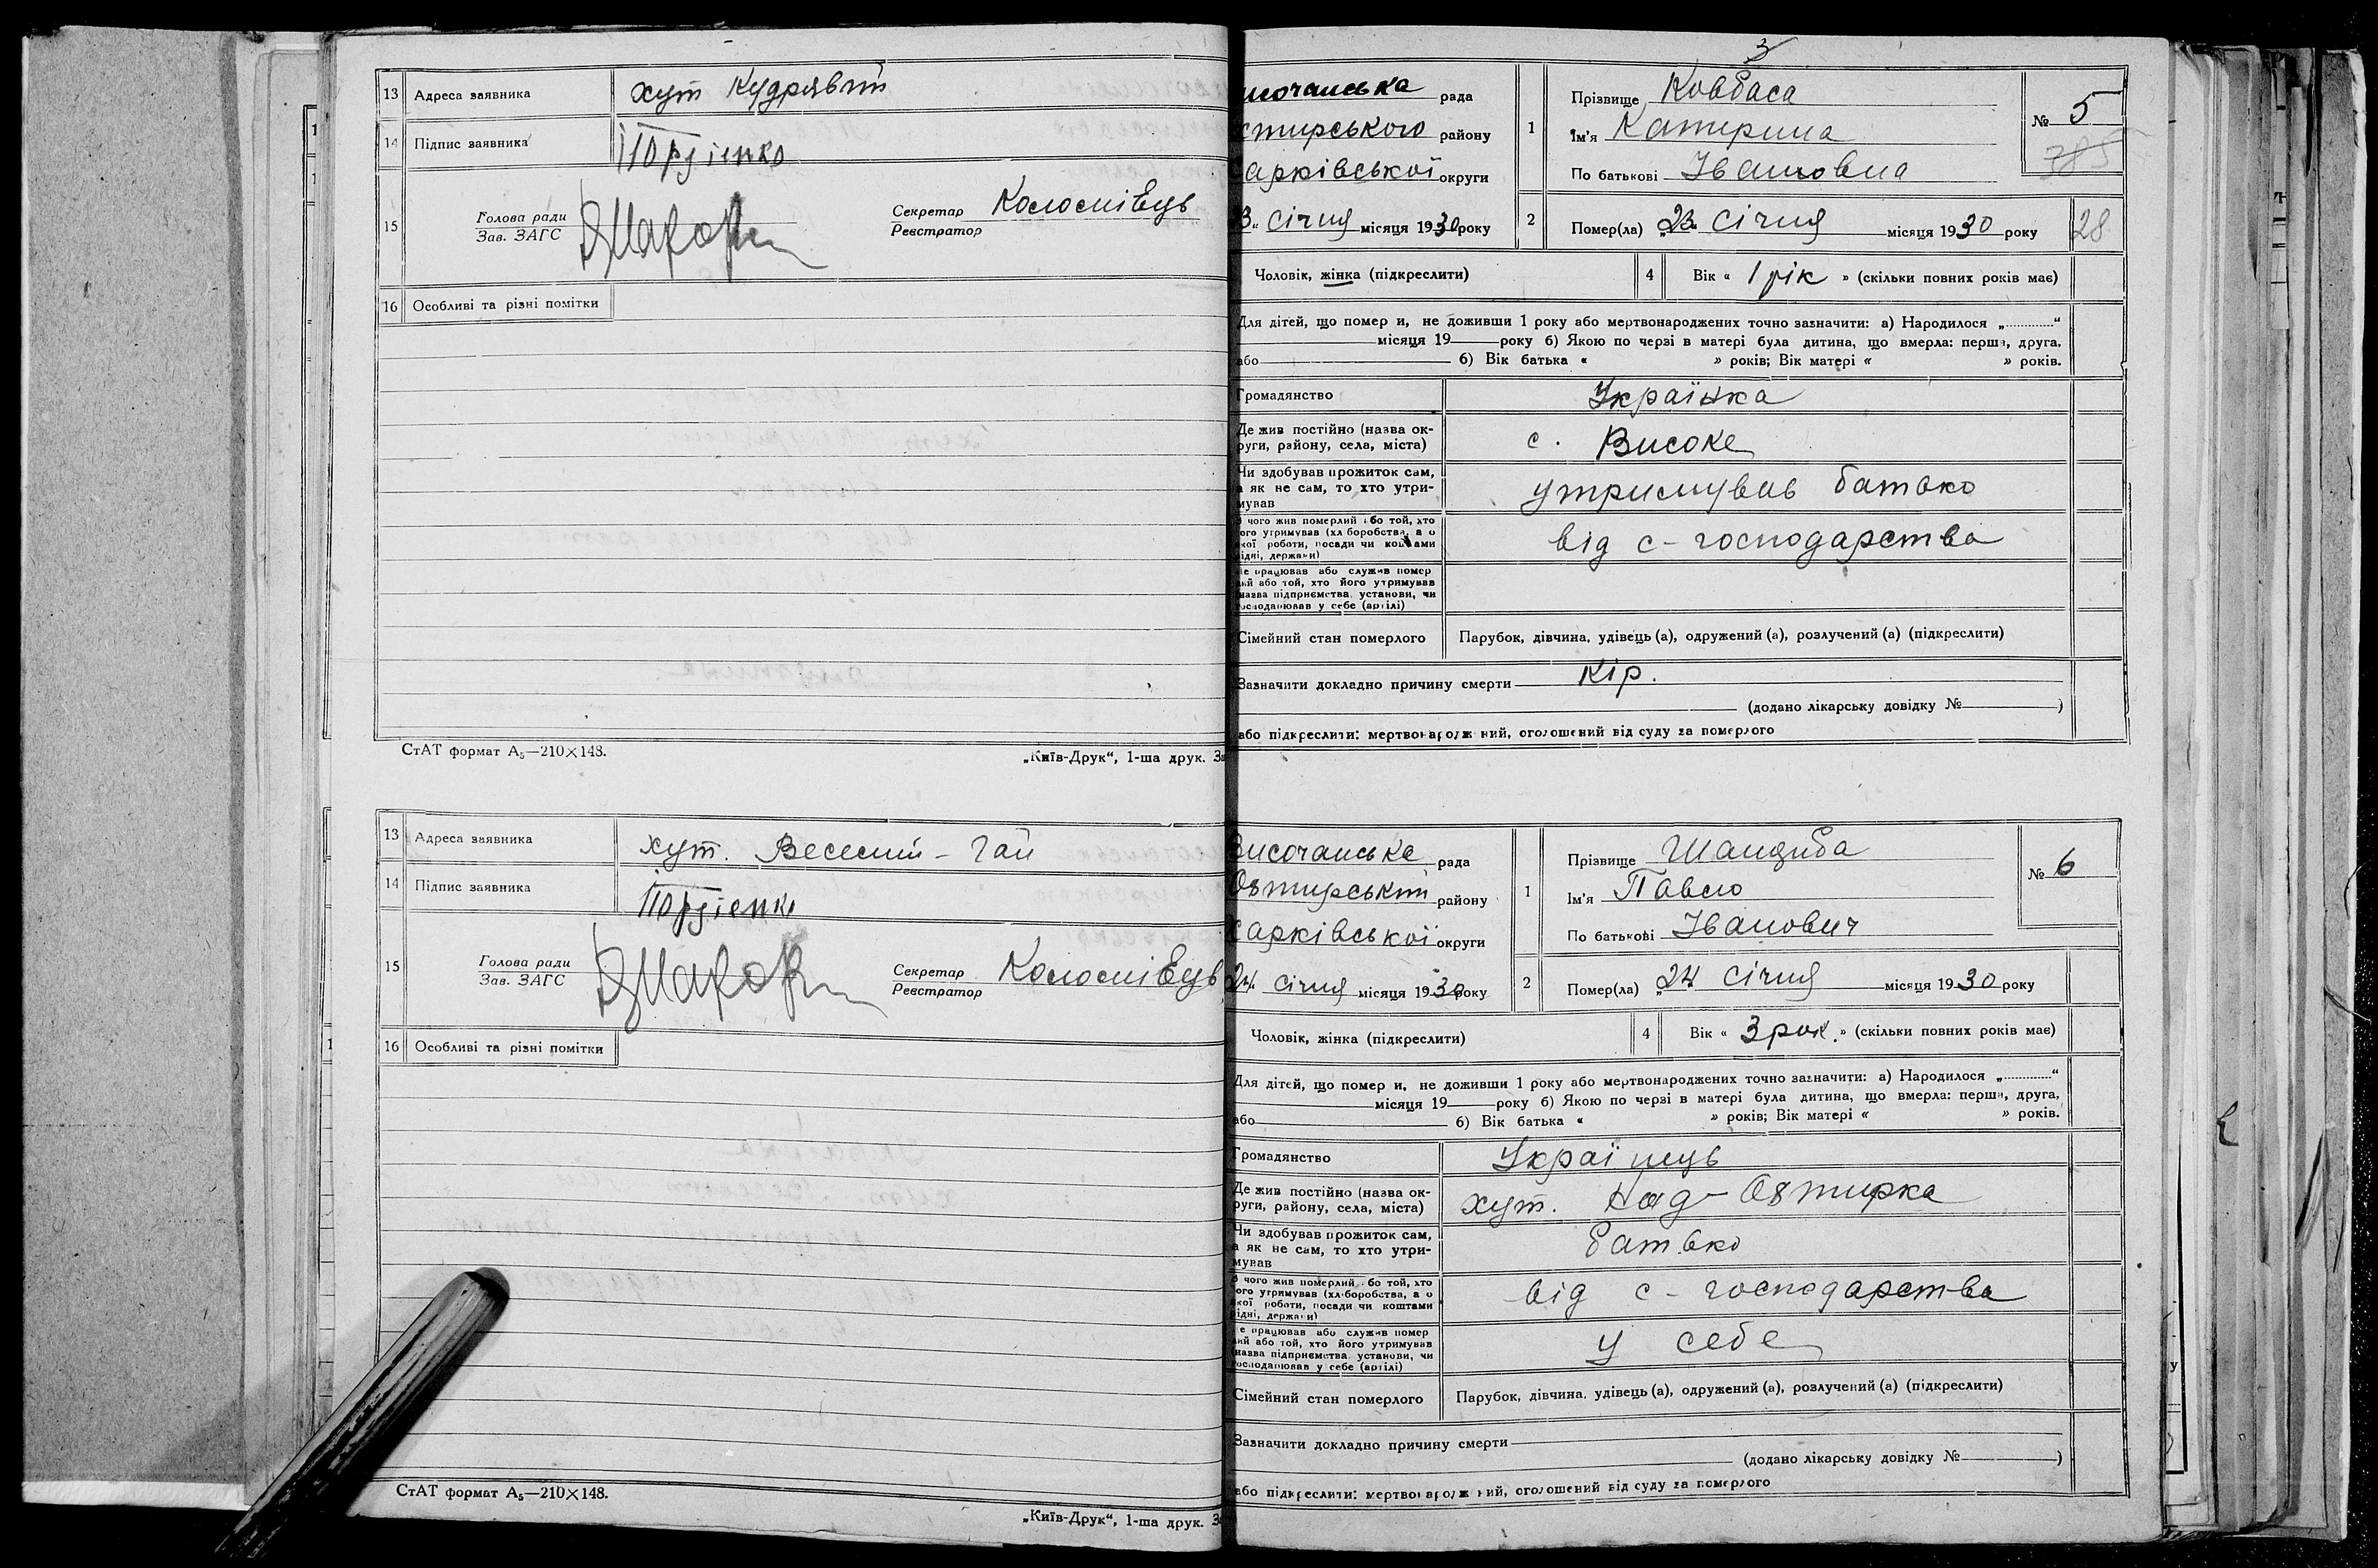 13 Адреса заявника хут Кудрявий
14 Підпис заявника
15 Голова ради
Зав. ЗАГС
Секретар Колоснівець
Реєстратор
16 Особливі та різні помітки
СтАТ формат А₅—210×148.
„Київ-Друк“, 1-ша друк. За
13 Адреса заявника хут. Веселий - Гай
14 Підпис заявника
15 Голова ради
Зав. ЗАГС
Секретар Колоснівець
Реєстратор
16 Особливі та різні помітки
СтАТ формат А₅—210×148.
„Київ-Друк“, 1-ша друк. За
3
исочанська рада
хтирського району
арківської округи
3 „ січня місяця 1930 року
1 Прізвище Ковбаса
Ім'я Катерина
По батькові Івановна
№ 5
785
2 Помер(ла) „23 січня місяця 1930 року
28
Чоловік, жінка (підкреслити)
4 Вік « 1 рік » (скільки повних років має)
Для дітей, що помер и, не доживши 1 року або мертвонароджених точно зазначити: а) Народилося „............“
місяця 19 року б) Якою по черзі в матері була дитина, що вмерла: перша, друга,
або 6) Вік батька « » років; Вік матері « » років.
Громадянство Українка
Де жив постійно (назва ок-
руги, району, села, міста) с. Високе
Чи здобував прожиток сам,
а як не сам, то хто утри-
мував утримував батько
З чого жив померлий або той, хто
його утримував (хліборобства, а о
якої роботи, посади чи коштами
рідні, держави) від с-господарства
Де працював або служив помер
лий або той, хто його утримував
(назва підприємства, установи, чи
господарював у себе (артілі)
Сімейний стан померлого Парубок, дівчина, удівець (а), одружений (а), розлучений (а) (підкреслити)
Зазначити докладно причину смерти Кір.
(додано лікарську довідку № )
або підкреслити: мертвонароджений, оголошений від суду за померлого
Височанська рада
Охтирський району
Харківської округи
24 січня місяця 1930 року
1 Прізвище Шандиба
Ім'я Павло
По батькові Іванович
№ 6
2 Помер(ла) „24 січня місяця 1930 року
Чоловік, жінка (підкреслити)
4 Вік « 3 рок. » (скільки повних років має)
Для дітей, що помер и, не доживши 1 року або мертвонароджених точно зазначити: а) Народилося „............“
місяця 19 року б) Якою по черзі в матері була дитина, що вмерла: перша, друга,
або 6) Вік батька « » років; Вік матері « » років.
Громадянство Українець
Де жив постійно (назва ок-
руги, району, села, міста) хут. Над-Охтирка
Чи здобував прожиток сам,
а як не сам, то хто утри-
мував батько
З чого жив померлий або той, хто
його утримував (хліборобства, а о
якої роботи, посади чи коштами
рідні, держави) від с-господарства
Де працював або служив помер
лий або той, хто його утримував
(назва підприємства, установи, чи
господарював у себе (артілі) у себе
Сімейний стан померлого Парубок, дівчина, удівець (а), одружений (а), розлучений (а) (підкреслити)
Зазначити докладно причину смерти
(додано лікарську довідку № )
або підкреслити: мертвонароджений, оголошений від суду за померлого